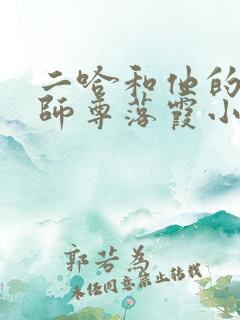 二哈和他的
師尊落霞小
郭若為
未经同意禁止转载